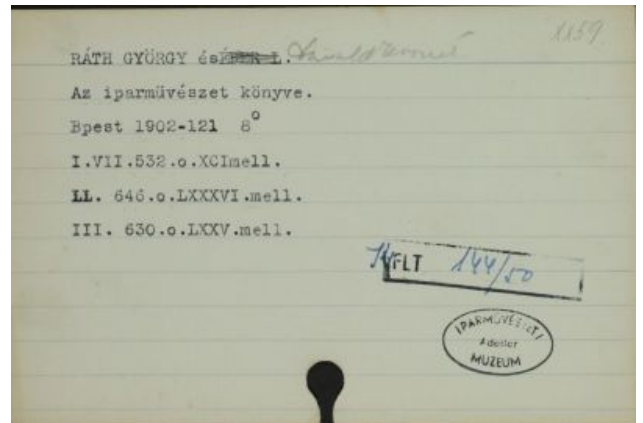 1159
RÁTH GYÖRGY és ÉBER L.
Az iparmüvészet könyve.
Bpest 1902-121 8°
I.VII.532.o.XCImell.
LL. 646.o.LXXXVI.mell.
III. 630.o.LXXV.mell.
FLT 144/50
IPARMŰVÉSZETI
Adattár
MUZEUM